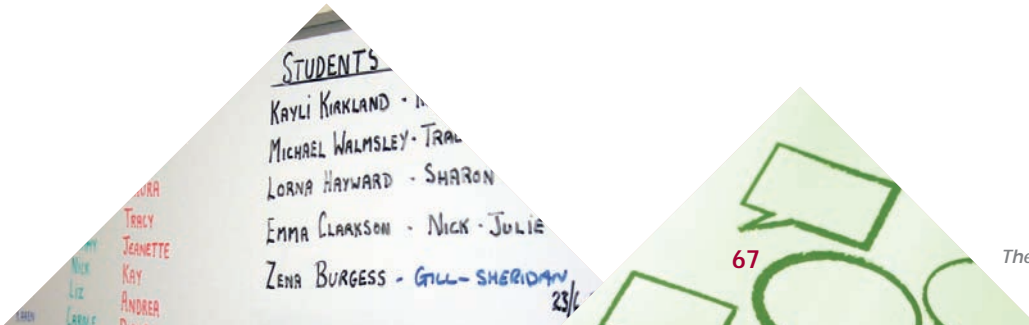 STUDENTS
KAYLI KIRKLAND -
MICHAEL WALMSLEY -
LORNA HAYWARD - SHARON
EMMA CLARKSON - NICK - JULIE
ZENA BURGESS - GILL - SHERIDAN
TRACY
JEANETTE
NICK KAY
LIZ ANDREA
CAROLE
67
The